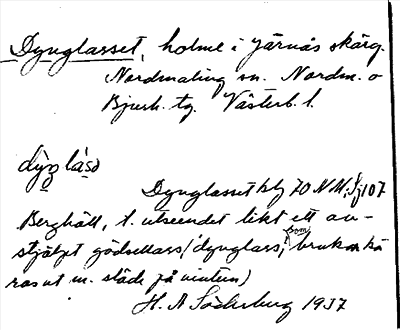 Dynglasset, holme i Järnäs skärg.
Nordmaling sn. Nordm. o
Bjurh. tg. Västerb. l.
dyŋ lásə
Dynglasset blz 70 N.M; Sj 107
Berghäll, t. utseendet likt ett av-
stjälpt gödsellass (dynglass, som brukar kö
ras ut m. släde på vintern)
H. A. Söderberg 1937